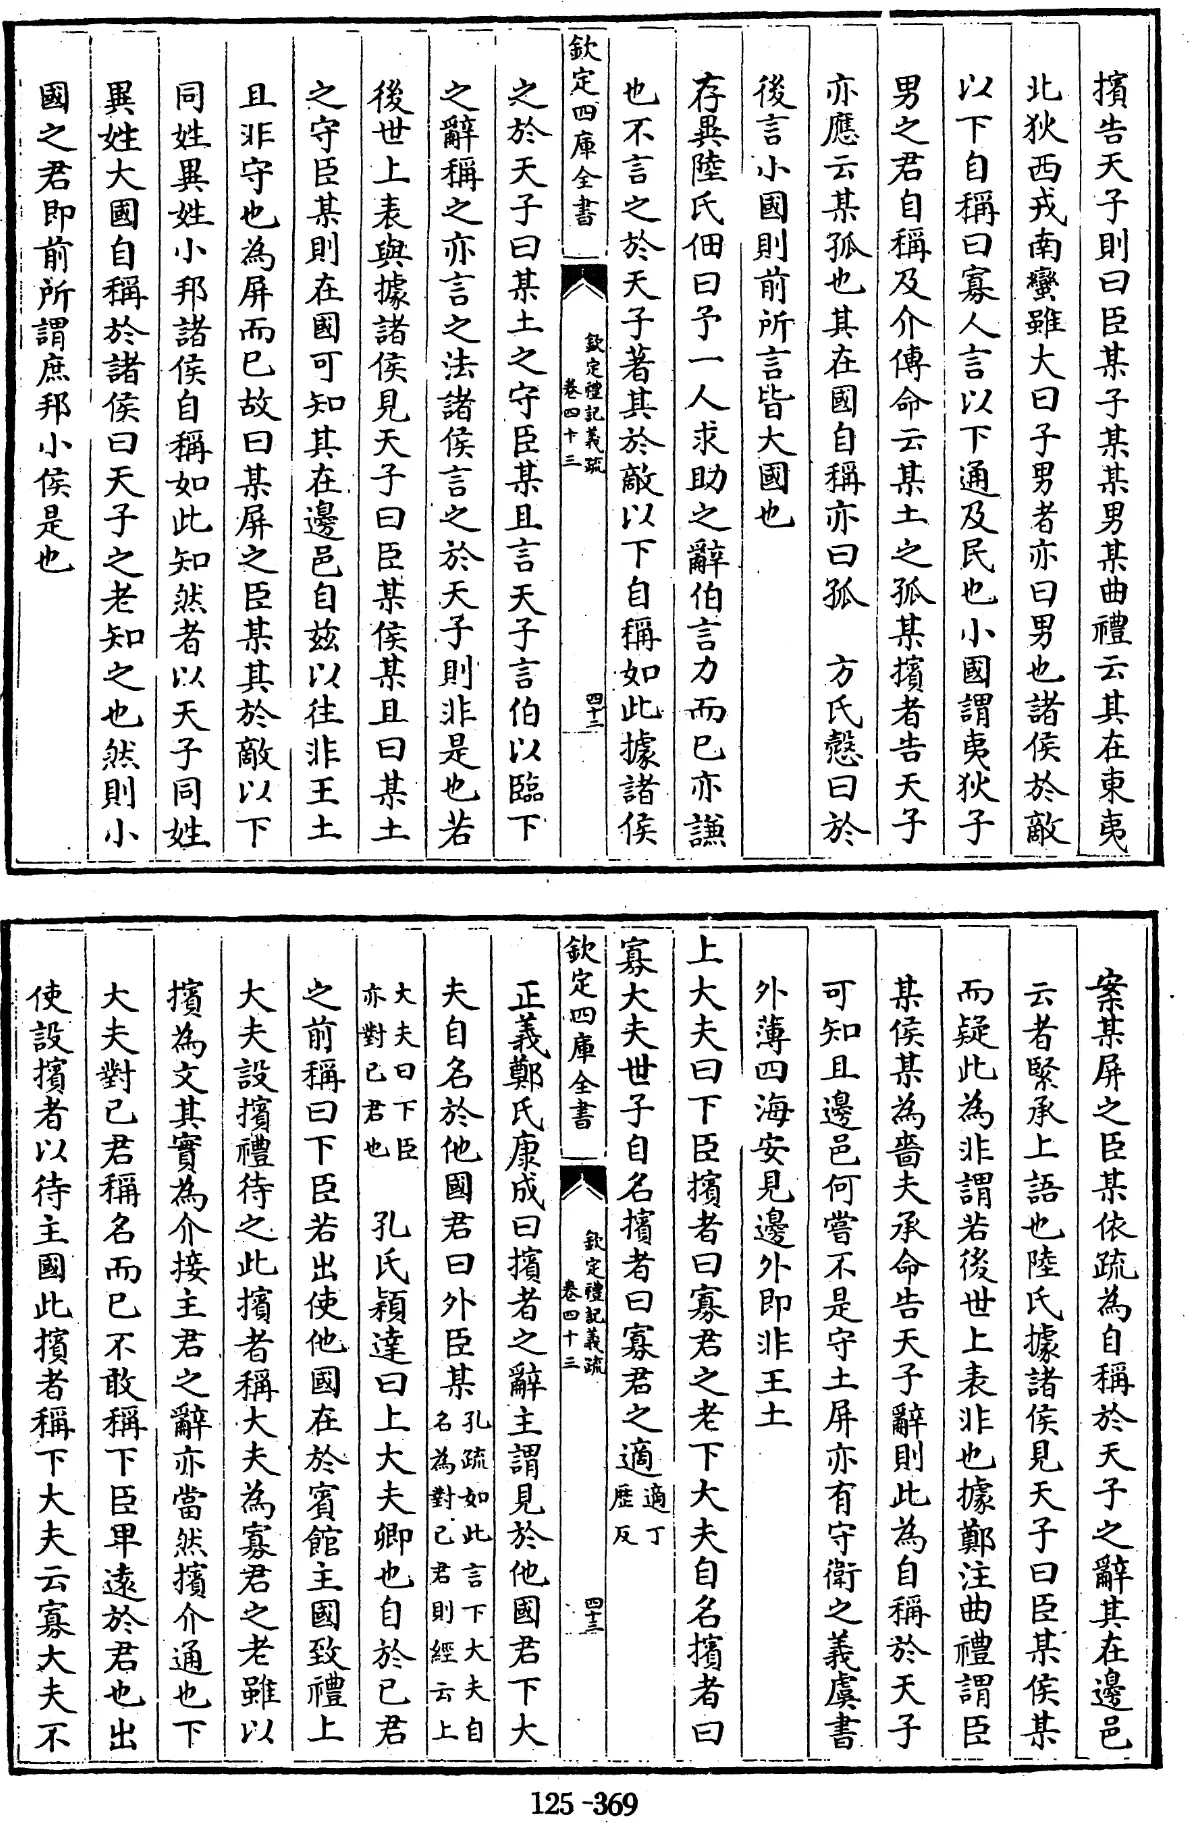 擯告天子則曰臣某子某某男某曲禮云其在東夷
北狄西戎南蠻雖大曰子男者亦曰男也諸侯於敵
以下自稱曰寡人言以下通及民也小國謂夷狄子
男之君自稱及介傳命云某土之孤某擯者告天子
亦應云某孤也其在國自稱亦曰孤　方氏慤曰於
後言小國則前所言皆大國也
存異陸氏佃曰予一人求助之辭伯言力而已亦謙
也不言之於天子著其於敵以下自稱如此據諸侯
欽定四庫全書
欽定禮記義疏
卷四十三
四十二
之於天子曰某土之守臣某且言天子言伯以臨下
之辭稱之亦言之法諸侯言之於天子則非是也若
後世上表與據諸侯見天子曰臣某侯某且曰某土
之守臣某則在國可知其在邊邑自兹以往非王土
且非守也為屏而已故曰某屏之臣某其於敵以下
同姓異姓小邦諸侯自稱如此知然者以天子同姓
異姓大國自稱於諸侯曰天子之老知之也然則小
國之君即前所謂庶邦小侯是也
案某屏之臣某依疏為自稱於天子之辭其在邊邑
云者緊承上語也陸氏據諸侯見天子曰臣某侯某
而疑此為非謂若後世上表非也據鄭注曲禮謂臣
某侯某為嗇夫承命告天子辭則此為自稱於天子
可知且邊邑何嘗不是守土屏亦有守衛之義虞書
外薄四海安見邊外即非王土
上大夫曰下臣擯者曰寡君之老下大夫自名擯者曰
寡大夫世子自名擯者曰寡君之適適丁歷反
欽定四庫全書
欽定禮記義疏
卷四十三
四十三
正義鄭氏康成曰擯者之辭主謂見於他國君下大
夫自名於他國君曰外臣某孔疏如此言下大夫自名為對己君則經云上
大夫曰下臣亦對己君也　孔氏穎達曰上大夫卿也自於己君
之前稱曰下臣若出使他國在於賓館主國致禮上
大夫設擯禮待之此擯者稱大夫為寡君之老雖以
擯為文其實為介接主君之辭亦當然擯介通也下
大夫對己君稱名而已不敢稱下臣卑遠於君也出
使設擯者以待主國此擯者稱下大夫云寡大夫不
125-369